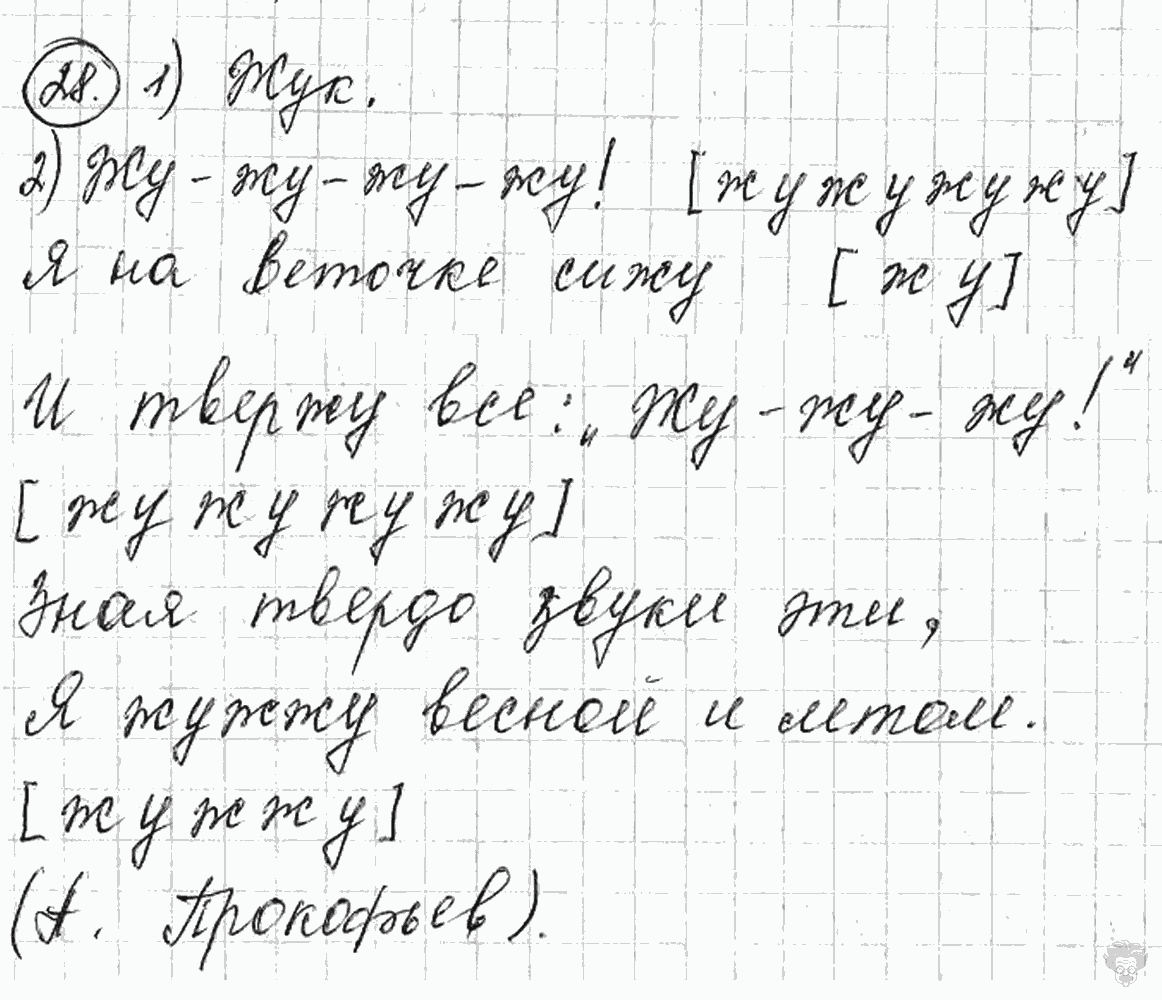 28. 1) Жук.
2) Жу - жу - жу - жу! [жужужужу]
Я на веточке сижу [жу]
И твержу все: „Жу - жу - жу!"
[жу жу жу жу]
Зная твердо звуки эти,
Я жужжу весной и летом.
[жужжу]
(А. Прокофьев).